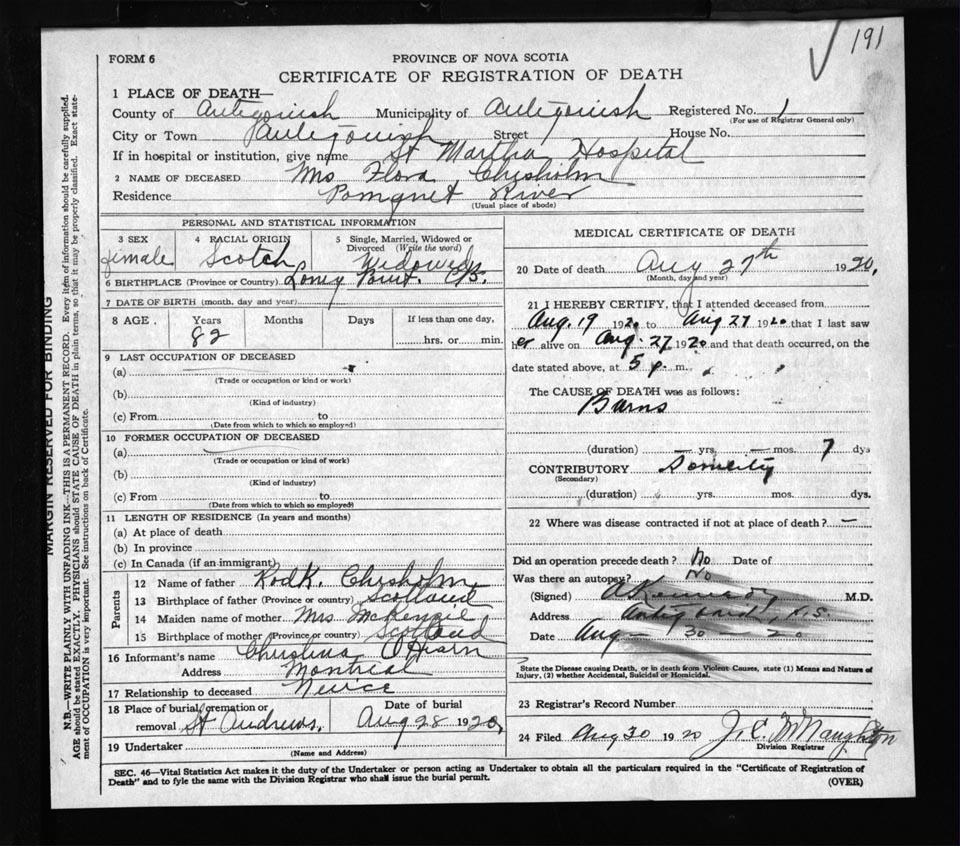 191
FORM 6
PROVINCE OF NOVA SCOTIA
CERTIFICATE OF REGISTRATION OF DEATH
1 PLACE OF DEATH—
County of Antigonish Municipality of Antigonish Registered No. 1
(For use of Registrar General only)
City or Town Antigonish Street House No.
If in hospital or institution, give name St Martha Hospital
2 NAME OF DECEASED Mrs Flora Chisholm
Residence Pomquet River
(Usual place of abode)
PERSONAL AND STATISTICAL INFORMATION
3 SEX female
4 RACIAL ORIGIN Scotch
5 Single, Married, Widowed or Divorced (Write the word) Widowed
6 BIRTHPLACE (Province or Country) Long Point. C.B.
7 DATE OF BIRTH (month, day and year)
8 AGE Years Months Days If less than one day,
82 hrs. or min.
9 LAST OCCUPATION OF DECEASED
(a)
(Trade or occupation or kind or work)
(b)
(Kind of industry)
(c) From to
(Date from which to which so employed)
10 FORMER OCCUPATION OF DECEASED
(a)
(Trade or occupation or kind of work)
(b)
(Kind of industry)
(c) From to
(Date from which to which so employed)
11 LENGTH OF RESIDENCE (In years and months)
(a) At place of death
(b) In province
(c) In Canada (if an immigrant)
Parents
12 Name of father Rodk. Chisholm
13 Birthplace of father (Province or country) Scotland
14 Maiden name of mother Mrs McKenzie
15 Birthplace of mother (Province or country) Scotland
16 Informant's name Christina O'Hearn
Address Montreal
17 Relationship to deceased Neice
18 Place of burial, cremation or removal St Andrews, Date of burial Aug 28 1920,
19 Undertaker
(Name and Address)
MEDICAL CERTIFICATE OF DEATH
20 Date of death Aug 27th 1920,
(Month, day and year)
21 I HEREBY CERTIFY, that I attended deceased from
Aug. 19 1920 to Aug 27 1920 that I last saw
her alive on Aug. 27 1920 and that death occurred, on the
date stated above, at 5 p. m.
The CAUSE OF DEATH was as follows:
Burns
(duration) — yrs. — mos. 7 dys
CONTRIBUTORY
(Secondary)
(duration) yrs. mos. dys.
22 Where was disease contracted if not at place of death? —
Did an operation precede death? No Date of
Was there an autopsy? No
(Signed) Kennedy M.D.
Address N.S.
Date Aug — 30 — 20
State the Disease causing Death, or in death from Violent Causes, state (1) Means and Nature of
Injury, (2) whether Accidental, Suicidal or Homicidal.
23 Registrar's Record Number
24 Filed Aug 30 1920 J. E. McNaughton
Division Registrar
SEC. 46—Vital Statistics Act makes it the duty of the Undertaker or person acting as Undertaker to obtain all the particulars required in the "Certificate of Registration of
Death" and to fyle the same with the Division Registrar who shall issue the burial permit. (OVER)
MARGIN RESERVED FOR BINDING
N.B.—WRITE PLAINLY WITH UNFADING INK—THIS IS A PERMANENT RECORD. Every item of information should be carefully supplied.
AGE should be stated EXACTLY. PHYSICIANS should STATE CAUSE OF DEATH in plain terms, so that it may be properly classified. Exact state-
ment of OCCUPATION is very important. See instructions on back of Certificate.